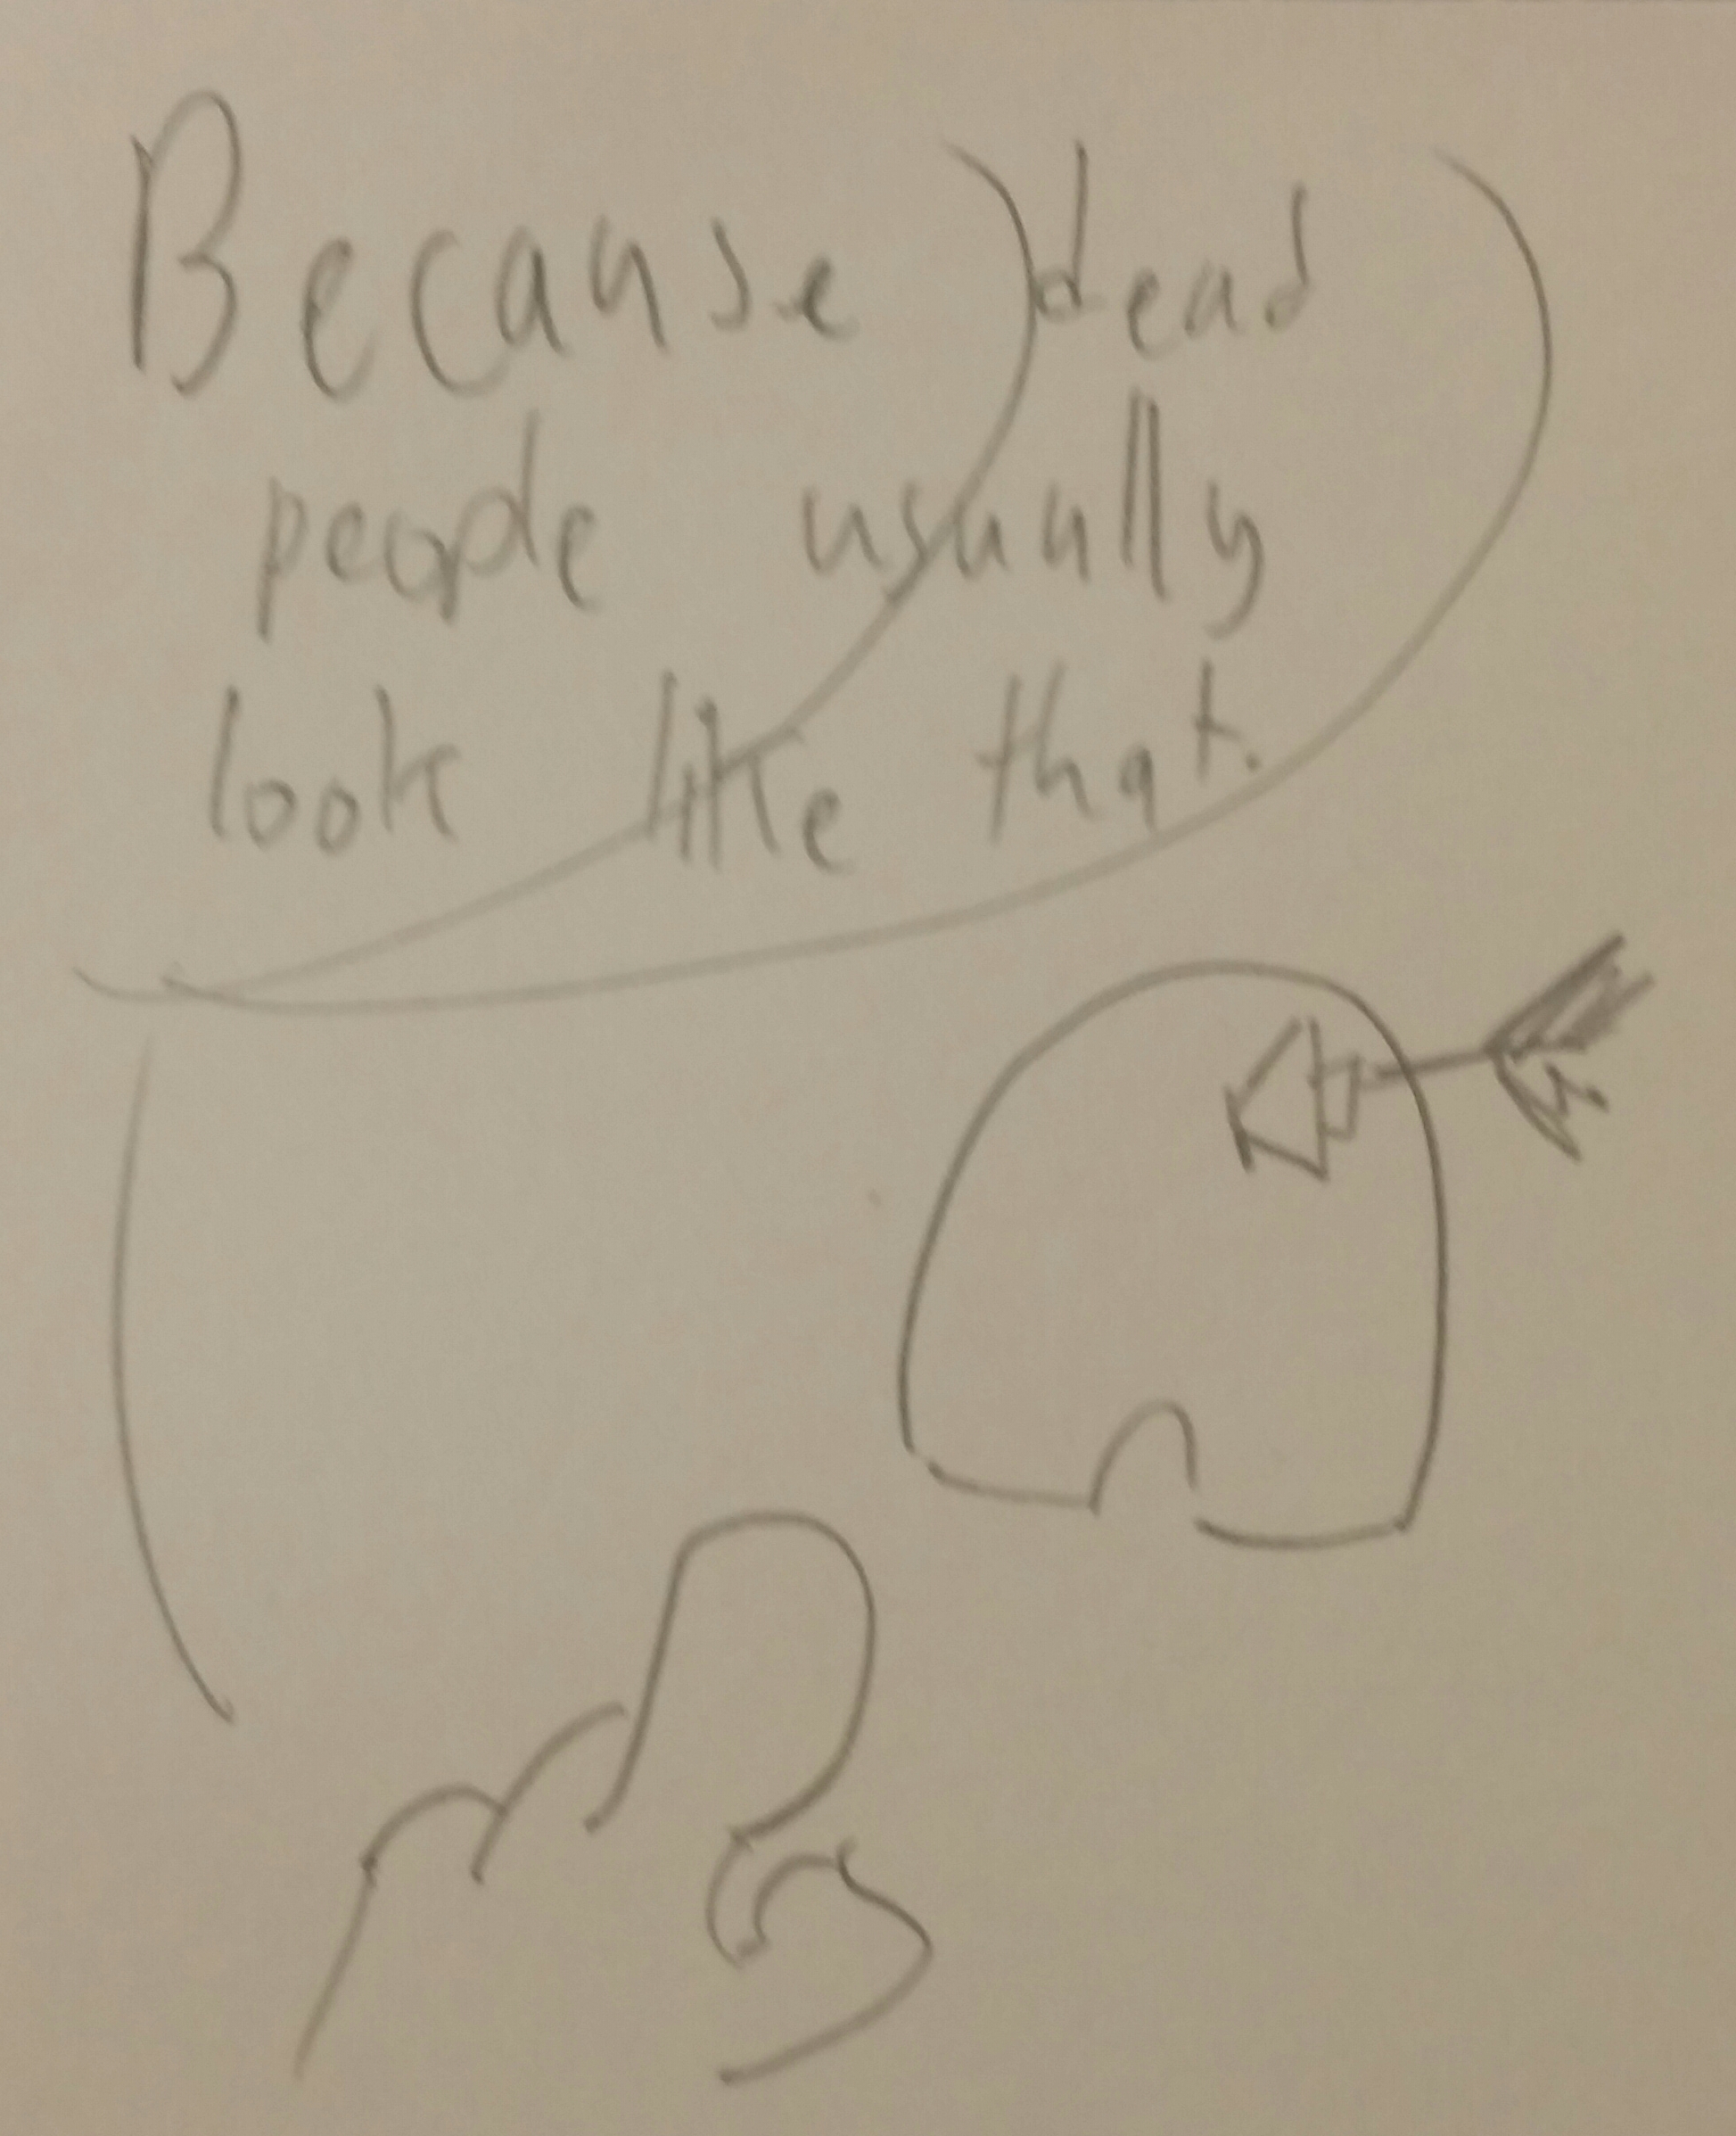 Because dead
people usually
look like that.